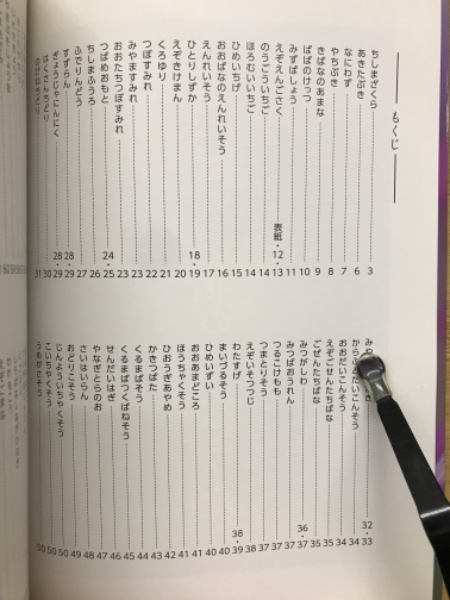 もくじ
ちしまざくら 3
あきたぶき 6
なにわず 7
やちぶき 8
きばなのあまな 9
ぱぱのけっつ 10
みずばしょう 11
えぞえんごさく 表紙・12・13
のうごういちご 14
ほろむいいちご 14
ひめいちげ 15
おおばなのえんれいそう 16
えんれいそう 17
ひとりしずか 18・19
えぞきけまん 20
くろゆり 21
つぼすみれ 22
みやますみれ 23
おおたちつぼすみれ 23
つばめおもと 24・25
ちしまふうろ 26
ふでりんどう 27
すずらん 28・29
ぎょうじゃにんにく 28・29
はくさんちどり 30
のびねちどり 31
32・33
からふとだいこんそう 34
おおだいこんそう 34
えぞごぜんたちばな 35
ごぜんたちばな 35
みつがしわ 36・37
みつばおうれん 37
つるこけもも 37
つまとりそう 37
えぞいそつつじ 38
わたすげ 38・39
まいづるそう 40
ひめいずい 40
おおあまどころ 41
ほうちゃくそう 41
ひおうぎあやめ 42
かきつばた 43
くるまばそう 44
くるまばつくばねそう 45
せんだいはぎ 46
やなぎとらのお 47
さいはいらん 48
おどりこそう 49
じんよういちやくそう 50
こいちやくそう 50
うめがさそう 50